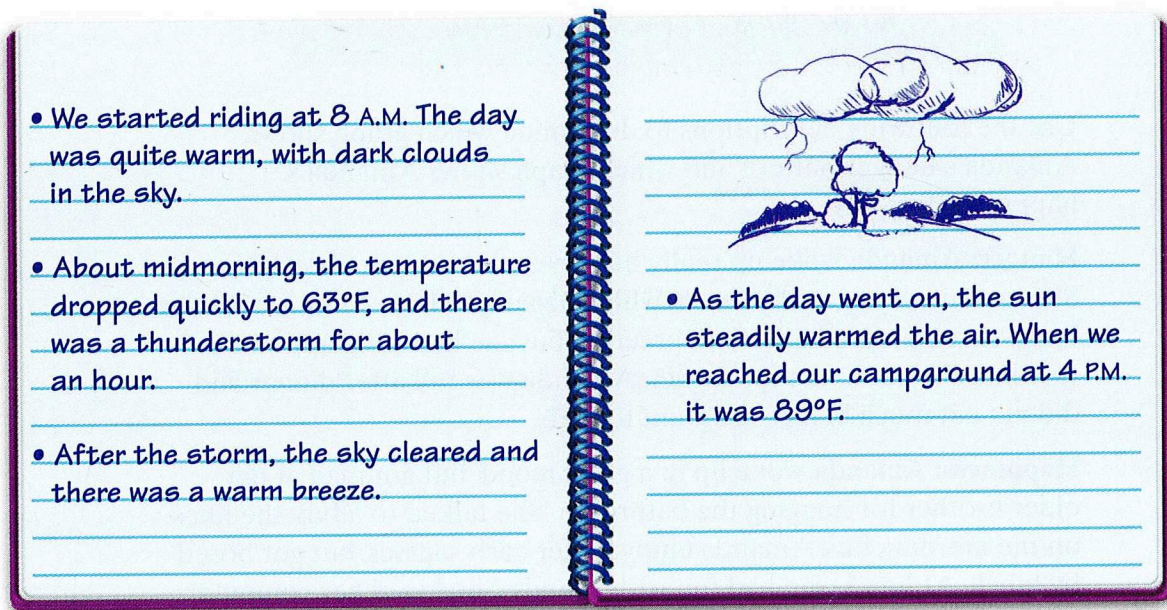 • We started riding at 8 A.M. The day
was quite warm, with dark clouds
in the sky.
• About midmorning, the temperature
dropped quickly to 63°F, and there
was a thunderstorm for about
an hour.
• After the storm, the sky cleared and
there was a warm breeze.
• As the day went on, the sun
steadily warmed the air. When we
reached our campground at 4 P.M.
it was 89°F.